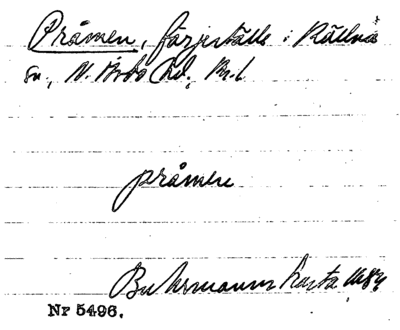 Pråmen, färjeställe i Källnäs
sn, N. Åsbo hd, Kr. l.
pråmen
Buhrmanns karta 1684
Nr 5496.